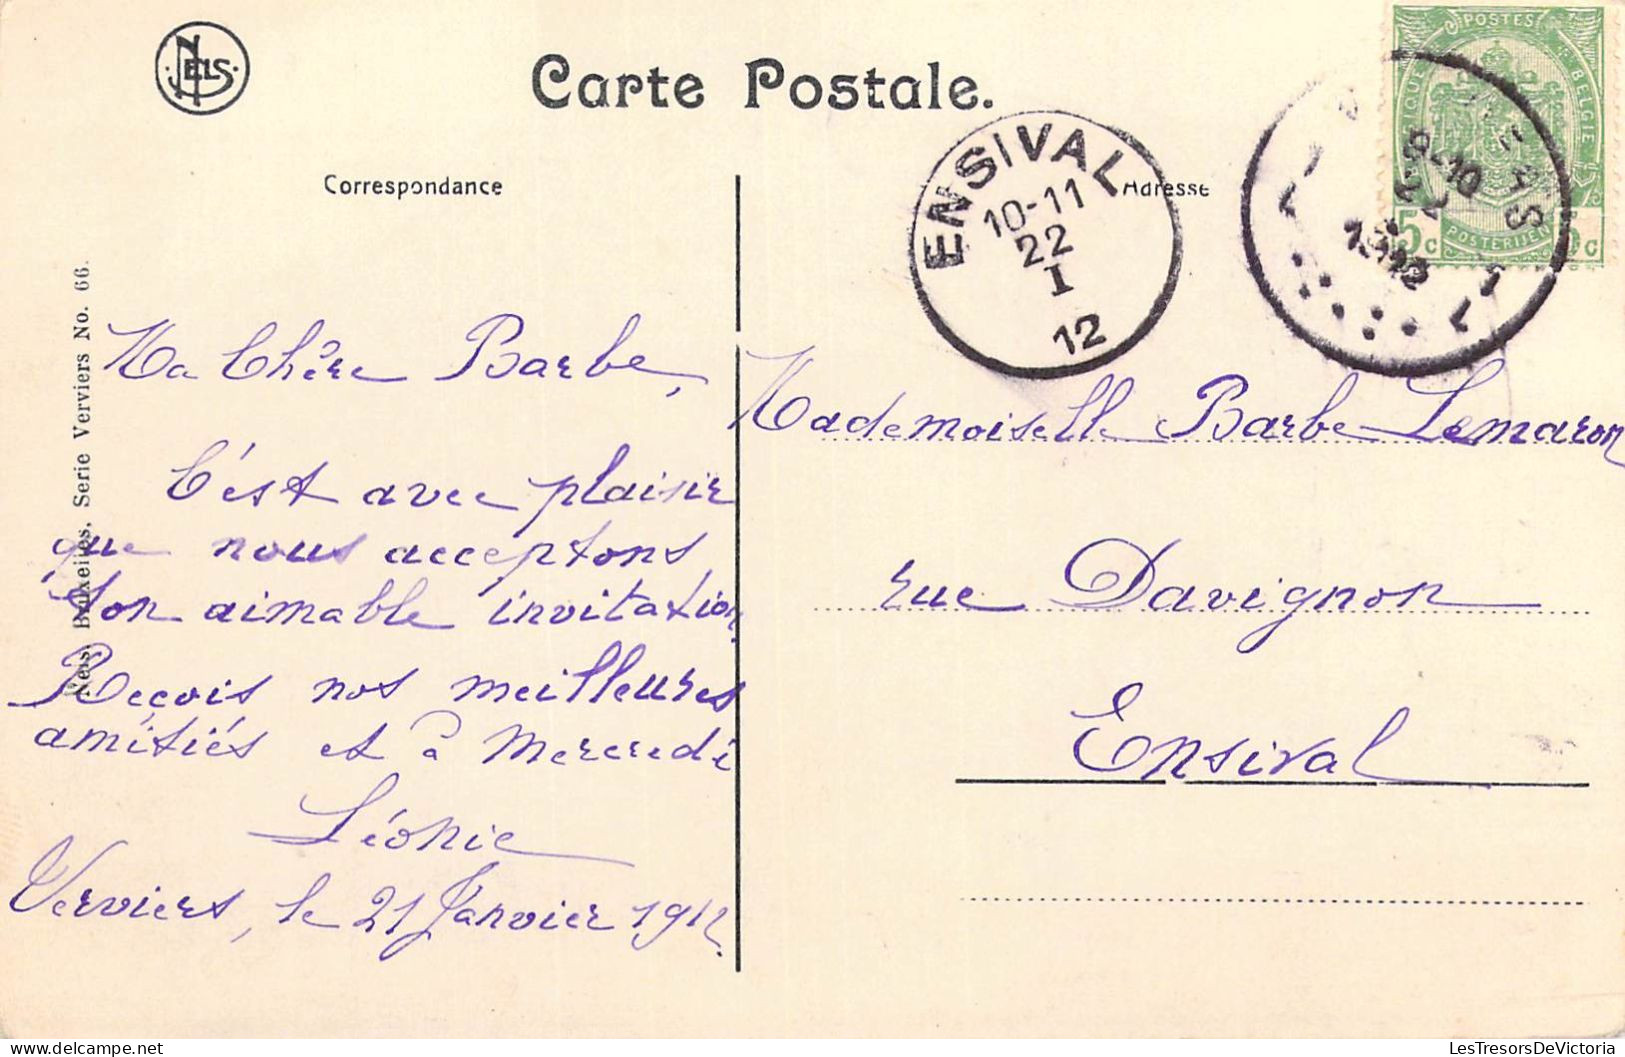 NELS
Carte Postale.
POSTES
BELGIQUE
BELGIE
5c
5c
POSTERIJEN
9-10
22
1912
ENSIVAL
10-11
22
I
12
Correspondance
Adresse
Nels, Bruxelles, Serie Verviers No. 66.
Ma Chère Barbe,
C'est avec plaisir
que nous acceptons
ton aimable invitation.
Reçois nos meilleures
amitiés et à Mercredi
Léonie
Verviers, le 21 Janvier 1912.
Mademoiselle Barbe Lemaron
rue Davignon
Ensival
LesTresorsDeVictoria